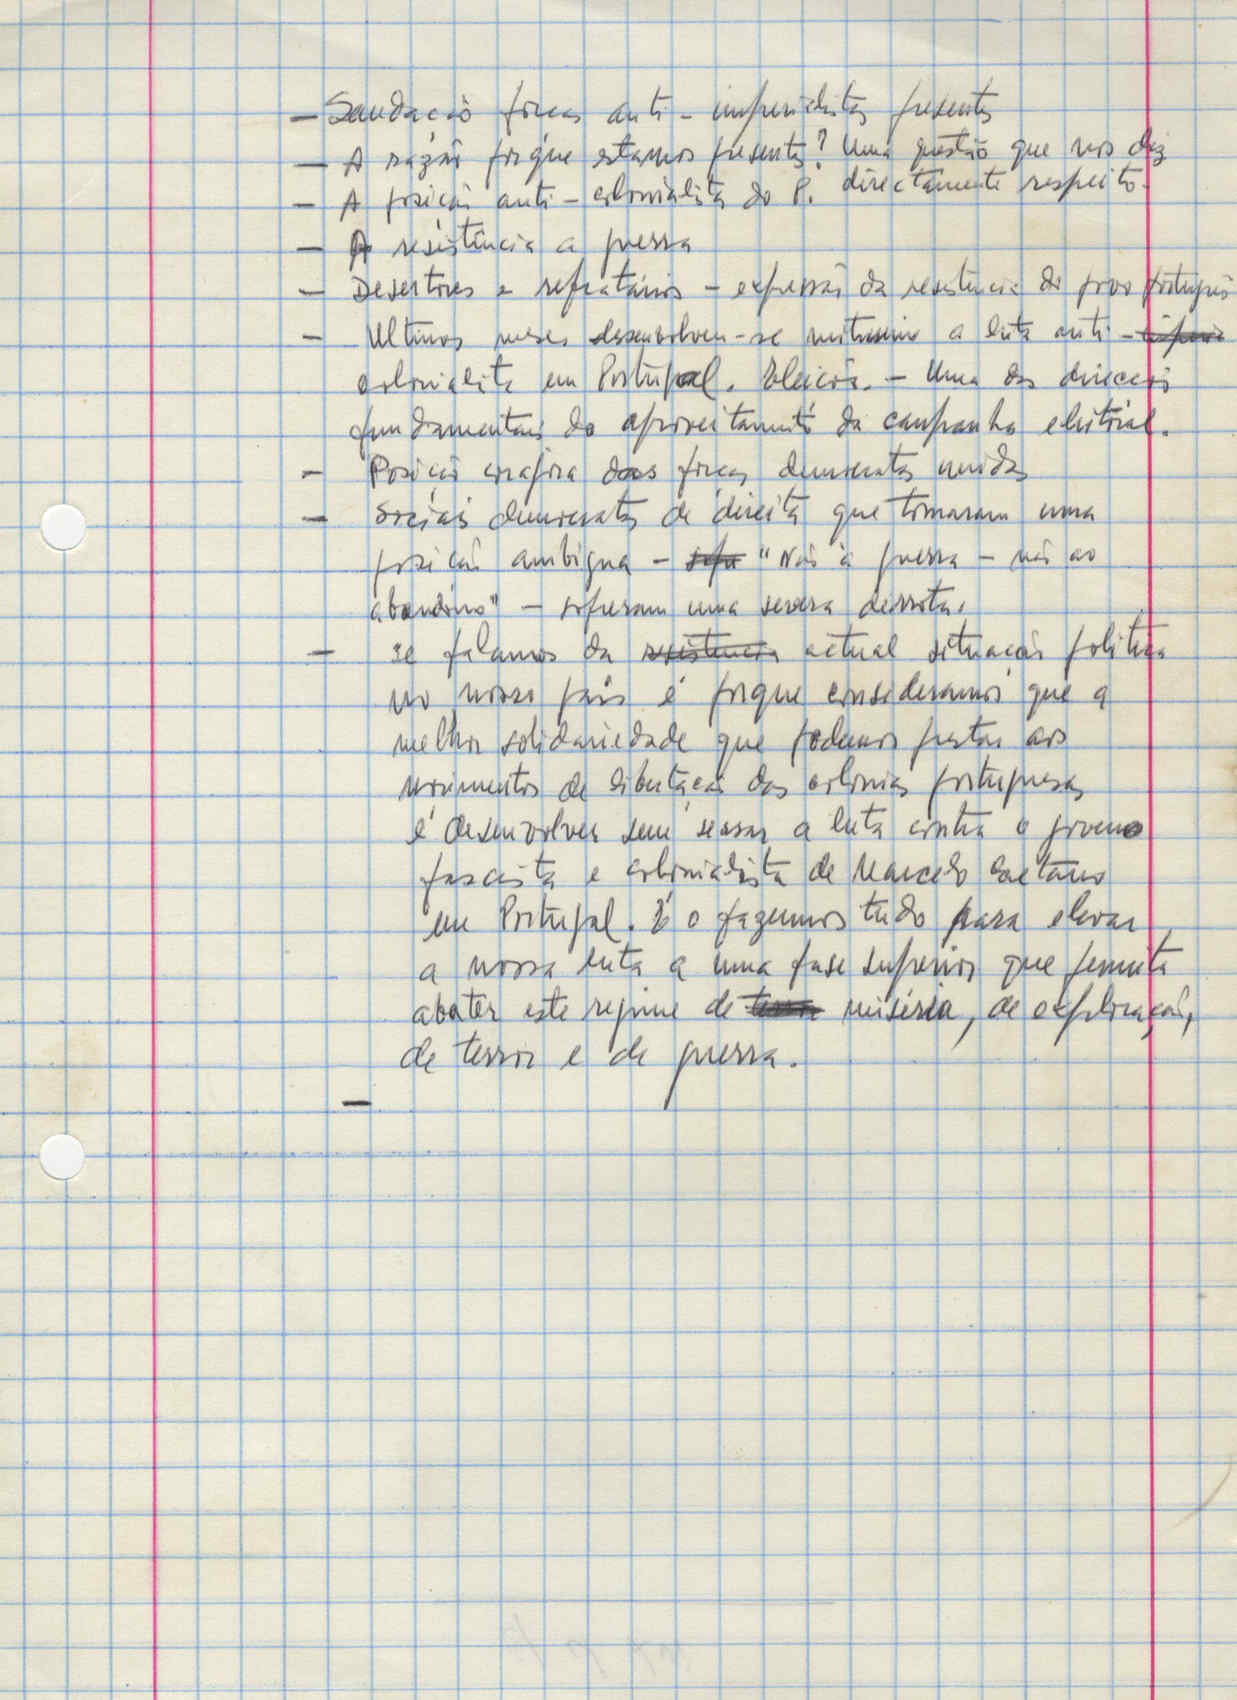 - Saudação forças anti-imperialistas presentes
- A razão porque estamos presentes? Uma questão que nos diz
directamente respeito.
- A posição anti-colonialista do P.
- A resistência a guerra
- Desertores e refratários - expressão da resistência do povo português
- Ultimos meses desenvolveu-se muitissimo a luta anti-
colonialista em Portugal. Eleições. - Uma das direcções
fundamentais do aproveitamento da campanha eleitoral.
- Posição corajosa das forças democratas unidas
- Sociais democratas de direita que tomaram uma
posição ambigua - "Não à guerra - não ao
abandono" - sofreram uma severa derrota.
- se falamos da resistencia actual situação politica
no nosso país é porque consideramos que a
melhor solidariedade que podemos prestar aos
movimentos de libertação das colonias portuguesas
é desenvolver sem sessar a luta contra o governo
fascista e colonialista de Marcelo Caetano
em Portugal. E o fazemos tudo para elevar
a nossa luta a uma fase superior que permita
abater este regime de miséria, de exploração,
de terror e de guerra.
-